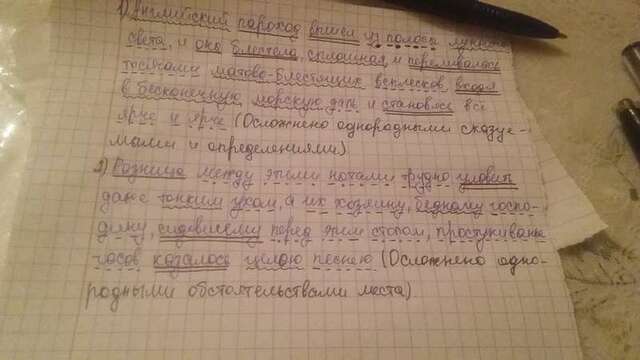 1) Английский пароход вышел из полосы лунного
света, и она блестела, сплошная, и переливалась
тысячами матово-блестящих всплесков, входя
в бесконечную морскую даль и становясь всё
ярче и ярче (Осложнено однородными сказуе-
мыми и определениями)
2) Разница между этими нотами трудно уловить
даже тонким ухом, а их хозяину, бедному госпо-
дину, сидевшему перед этим столом, простукивание
часов казалось целою песнею (Осложнено одно-
родными обстоятельствами места)